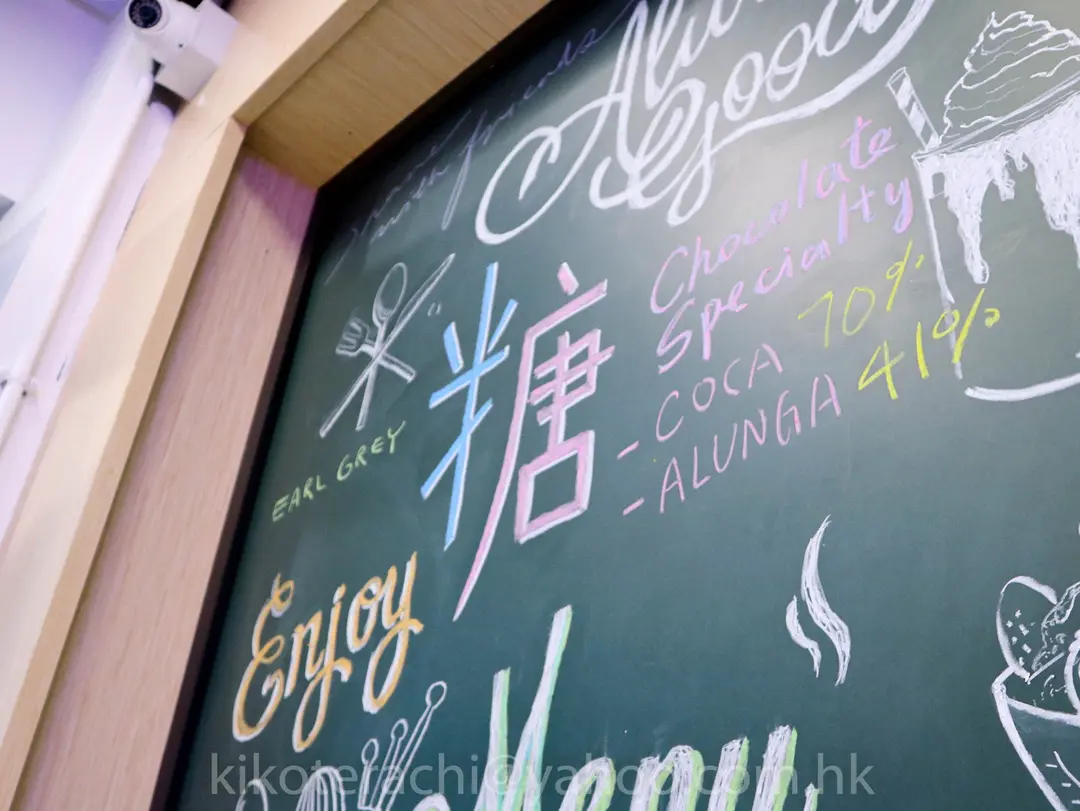 with friends
Good
糖
Chocolate
Specialty
- COCA 70%
- ALUNGA 41%
EARL GREY
Enjoy
Menu
kikoterachi@yahoo.com.hk